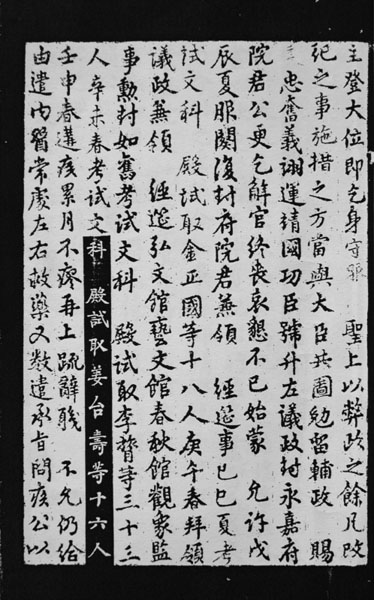 主登大位即乞身守 聖上以弊政之餘凡改
紀之事施措之方當與大臣共圖勉留輔政 賜
忠奮義翊運靖國功臣號升左議政封永嘉府
院君公更乞解官終喪哀懇不已始蒙 允許戊
辰夏服闋復封府院君兼領 經筵事己巳夏考
試文科 殿試取金正國等十八人庚午春拜領
議政兼領 經筵弘文館藝文館春秋館觀象監
事勳封如舊考試文科 殿試取李膂等三十三
人辛未春考試文科 殿試取姜台壽等十六人
壬申春遘疾累月不瘳再上疏辭職 不允仍給
由遣內醫常處左右救藥又數遣承旨問疾公以